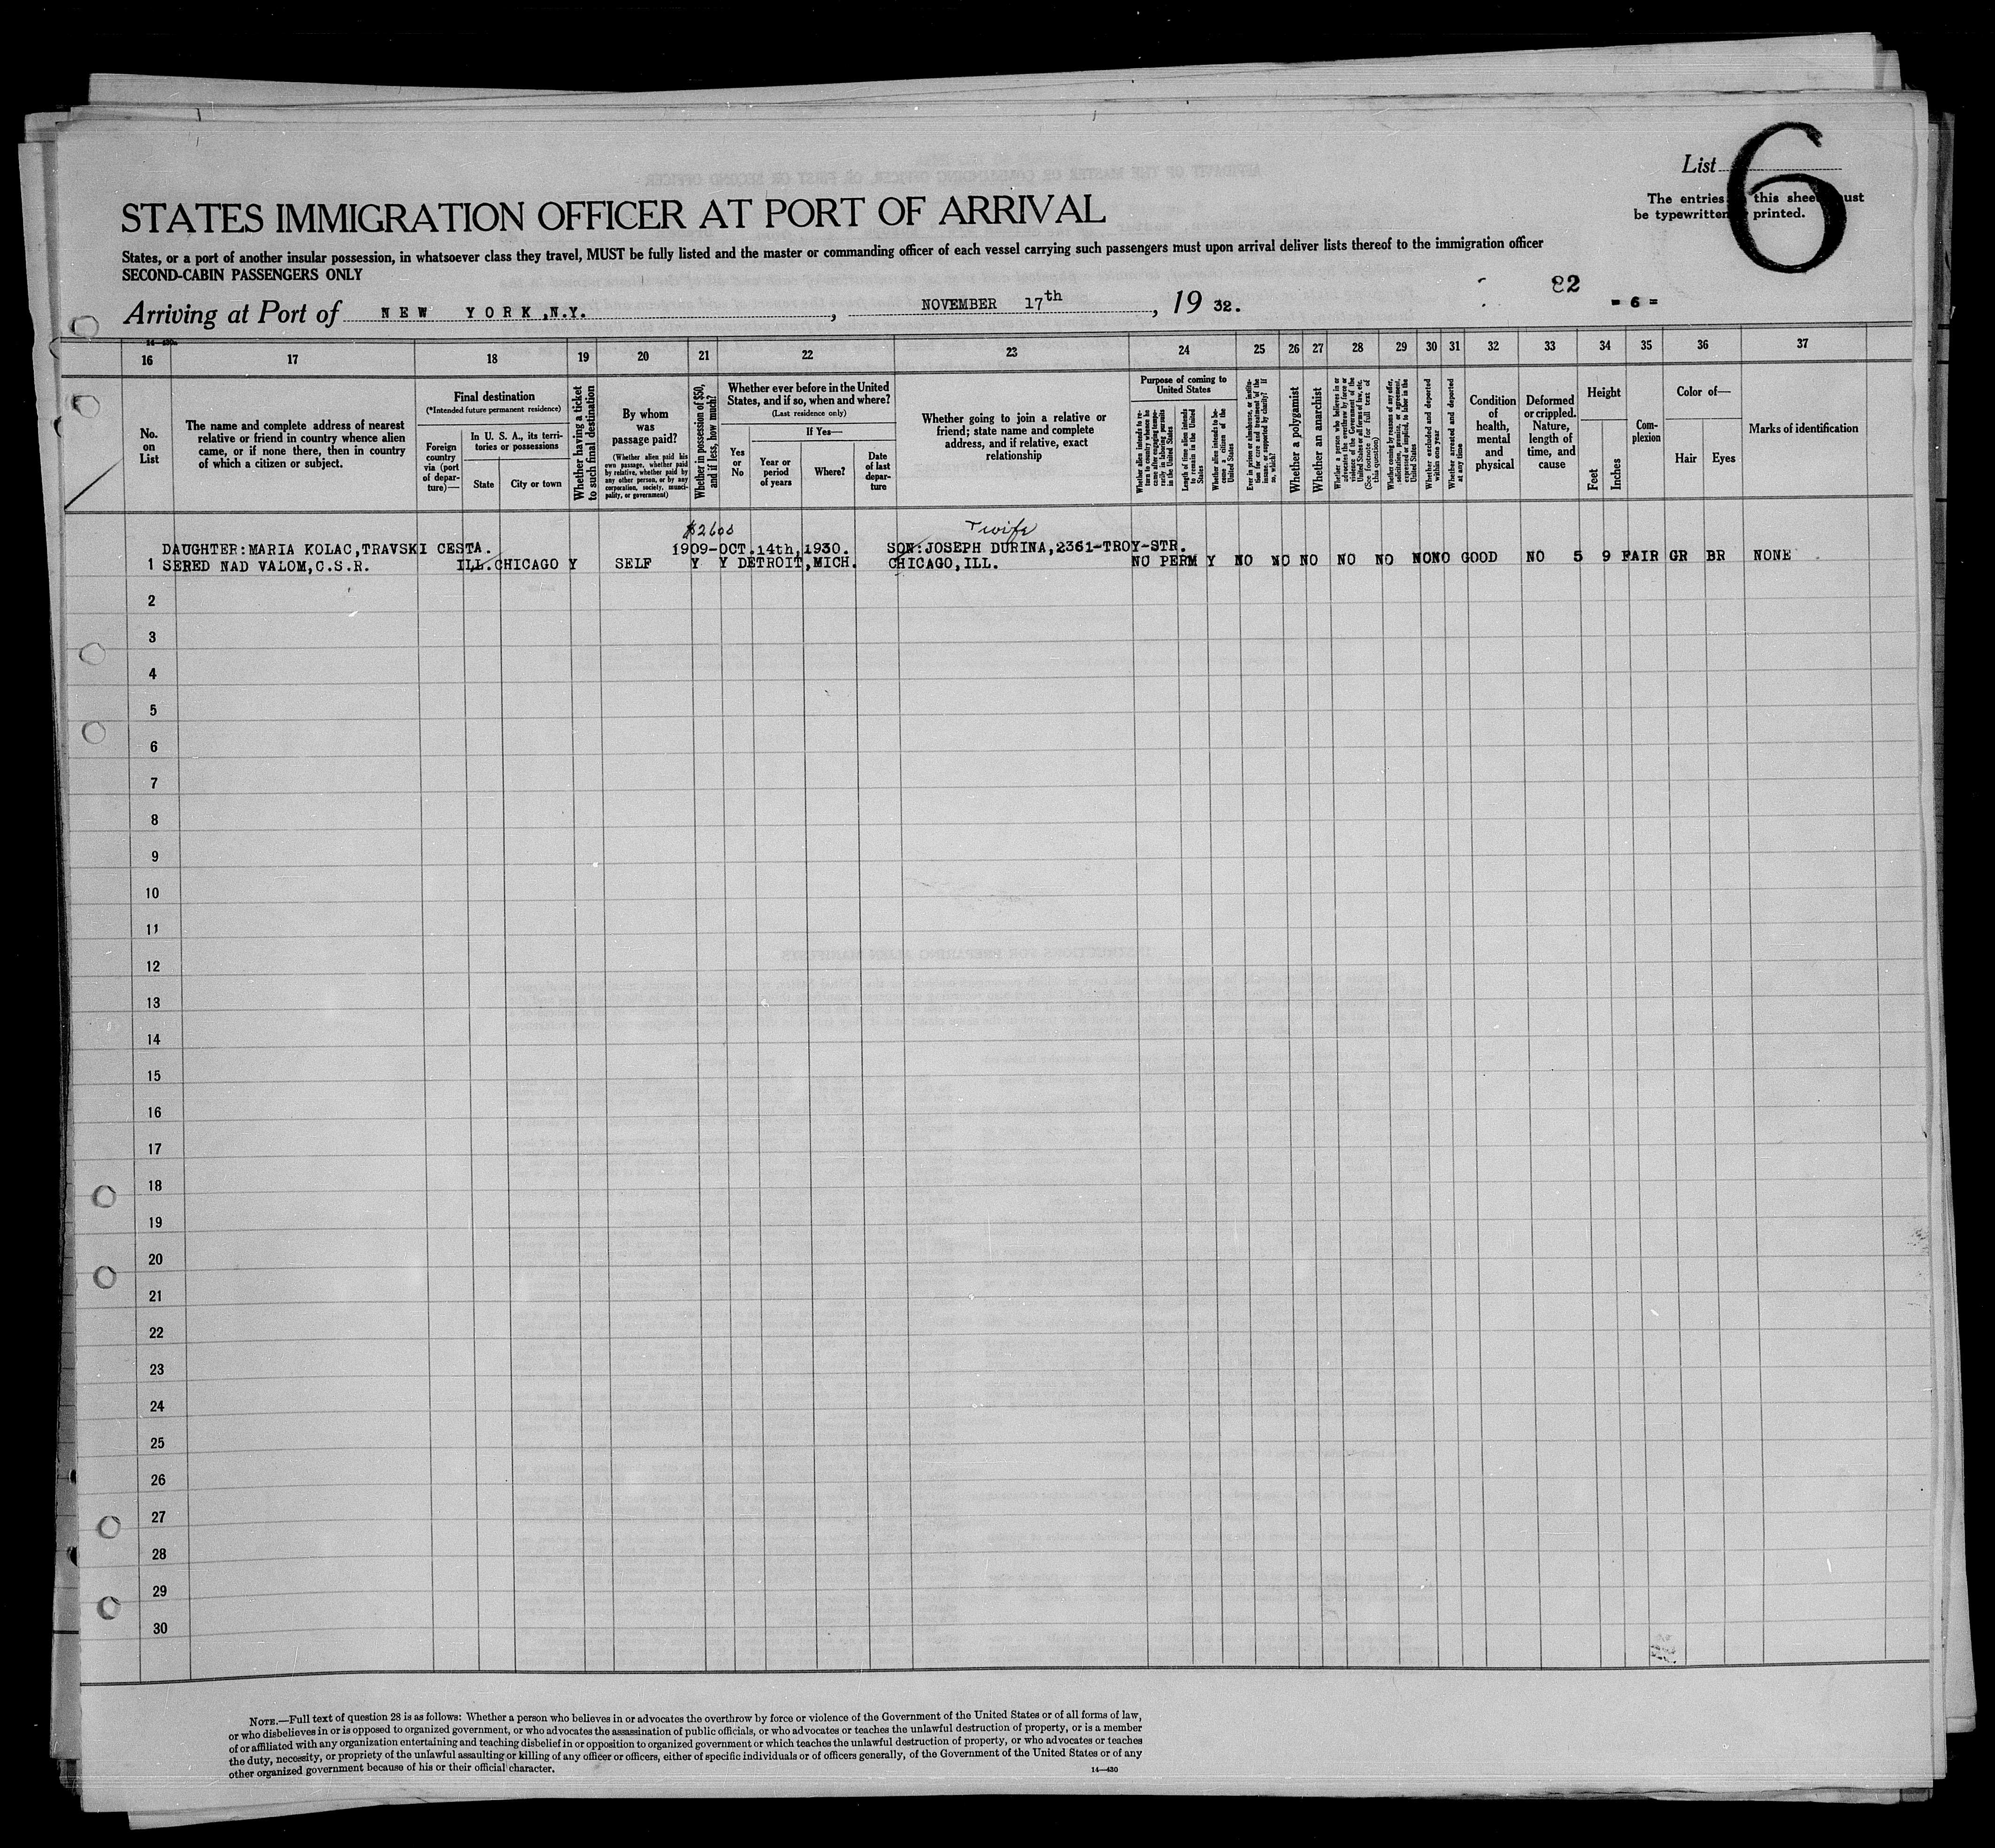 List
6
The entries this sheet must
be typewritten printed.
STATES IMMIGRATION OFFICER AT PORT OF ARRIVAL
States, or a port of another insular possession, in whatsoever class they travel, MUST be fully listed and the master or commanding officer of each vessel carrying such passengers must upon arrival deliver lists thereof to the immigration officer
SECOND-CABIN PASSENGERS ONLY
82
Arriving at Port of NEW YORK, N.Y., NOVEMBER 17th, 19 32.
= 6 =
14—430a
16 17 18 19 20 21 22 23 24 25 26 27 28 29 30 31 32 33 34 35 36 37
No.
on
List
The name and complete address of nearest
relative or friend in country whence alien
came, or if none there, then in country
of which a citizen or subject.
Final destination
(*Intended future permanent residence)
Foreign
country
via (port
of depar-
ture)—
In U. S. A., its terri-
tories or possessions
State
City or town
Whether having a ticket
to such final destination
By whom
was
passage paid?
(Whether alien paid his
own passage, whether paid
by relative, whether paid by
any other person, or by any
corporation, society, munici-
pality, or government)
Whether in possession of $50,
and if less, how much?
Whether ever before in the United
States, and if so, when and where?
(Last residence only)
Yes
or
No
If Yes—
Year or
period
of years
Where?
Date
of last
depar-
ture
Whether going to join a relative or
friend; state name and complete
address, and if relative, exact
relationship
Purpose of coming to
United States
Whether alien intends to re-
turn to country whence he
came after engaging tempo-
rarily in laboring pursuits
in the United States
Length of time alien intends
to remain in the United
States
Whether alien intends to be-
come a citizen of the
United States
Ever in prison or almshouse, or institu-
tion for care and treatment of the
insane, or supported by charity? If
so, which?
Whether a polygamist
Whether an anarchist
Whether a person who believes in or
advocates the overthrow by force or
violence of the Government of the
United States or all forms of law, etc.
(See footnote for full text of
this question)
Whether coming by reasons of any offer,
solicitation, promise, or agreement,
expressed or implied, to labor in the
United States
Whether excluded and deported
within one year
Whether arrested and deported
at any time
Condition
of
health,
mental
and
physical
Deformed
or crippled.
Nature,
length of
time, and
cause
Height
Feet
Inches
Com-
plexion
Color of—
Hair
Eyes
Marks of identification
$2600
wife
DAUGHTER:MARIA KOLAC,TRAVSKI CESTA. 1909-OCT.14th,1930. SON:JOSEPH DURINA,2361-TROY-STR.
1 SERED NAD VALOM,C.S.R. ILL.CHICAGO Y SELF Y Y DETROIT,MICH. CHICAGO,ILL. NO PERM Y NO NO NO NO NO NONO GOOD NO 5 9 FAIR GR BR NONE
2
3
4
5
6
7
8
9
10
11
12
13
14
15
16
17
18
19
20
21
22
23
24
25
26
27
28
29
30
NOTE.—Full text of question 28 is as follows: Whether a person who believes in or advocates the overthrow by force or violence of the Government of the United States or of all forms of law,
or who disbelieves in or is opposed to organized government, or who advocates the assassination of public officials, or who advocates or teaches the unlawful destruction of property, or is a member
of or affiliated with any organization entertaining and teaching disbelief in or opposition to organized government or which teaches the unlawful destruction of property, or who advocates or teaches
the duty, necessity, or propriety of the unlawful assaulting or killing of any officer or officers, either of specific individuals or of officers generally, of the Government of the United States or of any
other organized government because of his or their official character.
14—430